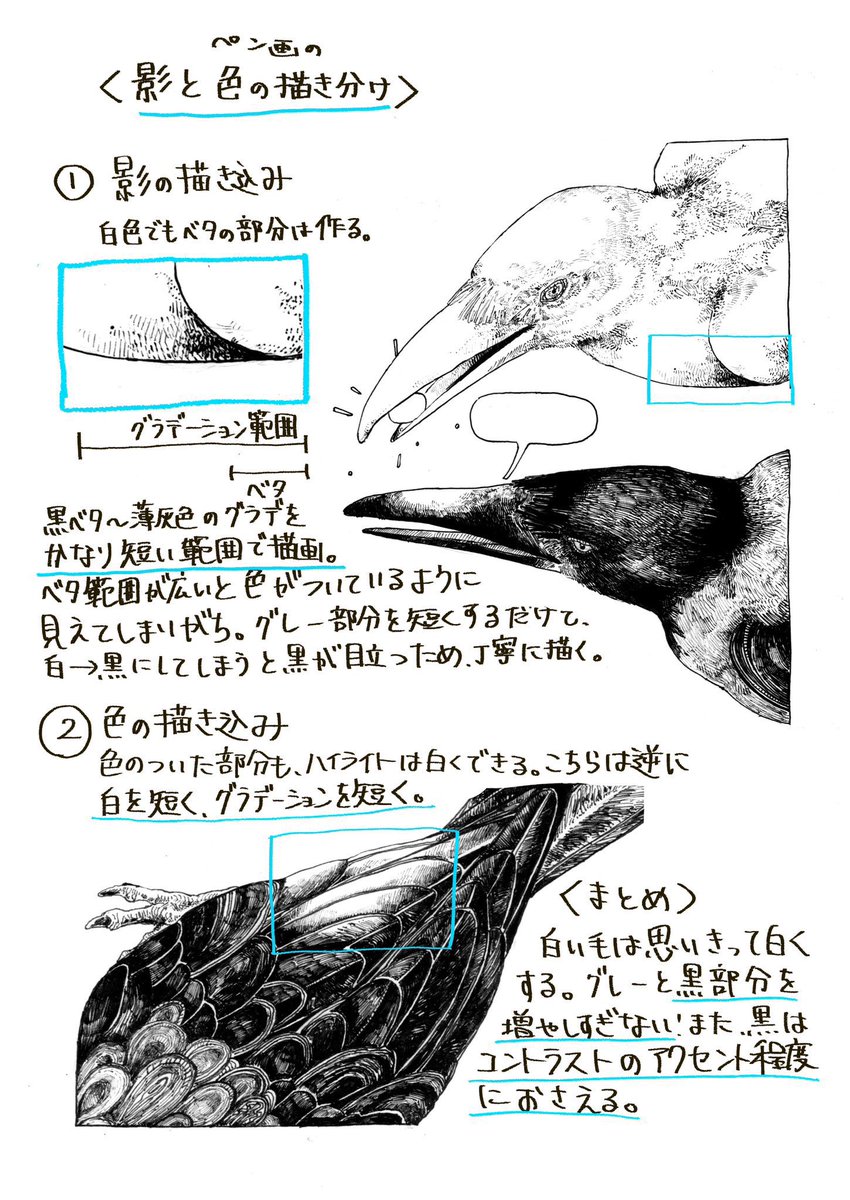 ペン画の
〈影と色の描き分け〉
① 影の描き込み
白色でもベタの部分は作る。
グラデーション範囲
ベタ
黒ベタ〜薄灰色のグラデを
かなり短い範囲で描画。
ベタ範囲が広いと色がついているように
見えてしまいがち。グレー部分を短くするだけで、
白→黒にしてしまうと黒が目立つため、丁寧に描く。
② 色の描き込み
色のついた部分も、ハイライトは白くできる。こちらは逆に
白を短く、グラデーションを短く。
〈まとめ〉
白い毛は思いきって白く
する。グレーと黒部分を
増やしすぎない!また、黒は
コントラストのアクセント程度
におさえる。